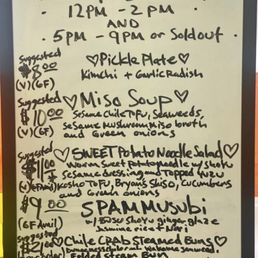 12PM - 2PM
AND
5PM - 9PM or Sold out
Suggested
$8.00
(V)(GF)
♡Pickle Plate♡
Kimchi + Garlic Radish
Suggested
$10.00
(V)(GF)
♡Miso Soup♡
Sesame Chile Tofu, Seaweeds,
Sesame Mushroom Miso broth
and Green onions
Suggested
♡SWEET Potato Noodle Salad♡
Warm Sweet Potato noodle w/ shoyu
+ sesame dressing and Topped Yuzu
Kosho Tofu, Bryans Shiso, Cucumbers
and Green onions
$9.00
(GF Avail)
SPAM MUSUBI
w/ Shoyu ginger glaze
Jasmine rice + Nori
Suggested
♡Chile CRAB Steamed Buns♡
Folded Steam Bun